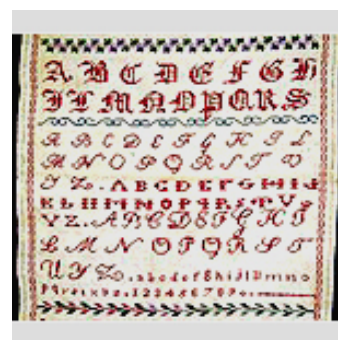 A B C D E F G H
I L M N O P Q R S
A B C D E F G H I L
M N O P Q R S T V
Y Z. A B C D E F G H I J
K L M N O P Q R S T V
Y Z. A B C D E F G H I
L M N O P Q R S T
U Y Z. a b c d e f g h i j l m n o
p q r s t 1 2 3 4 5 6 7 8 9 0